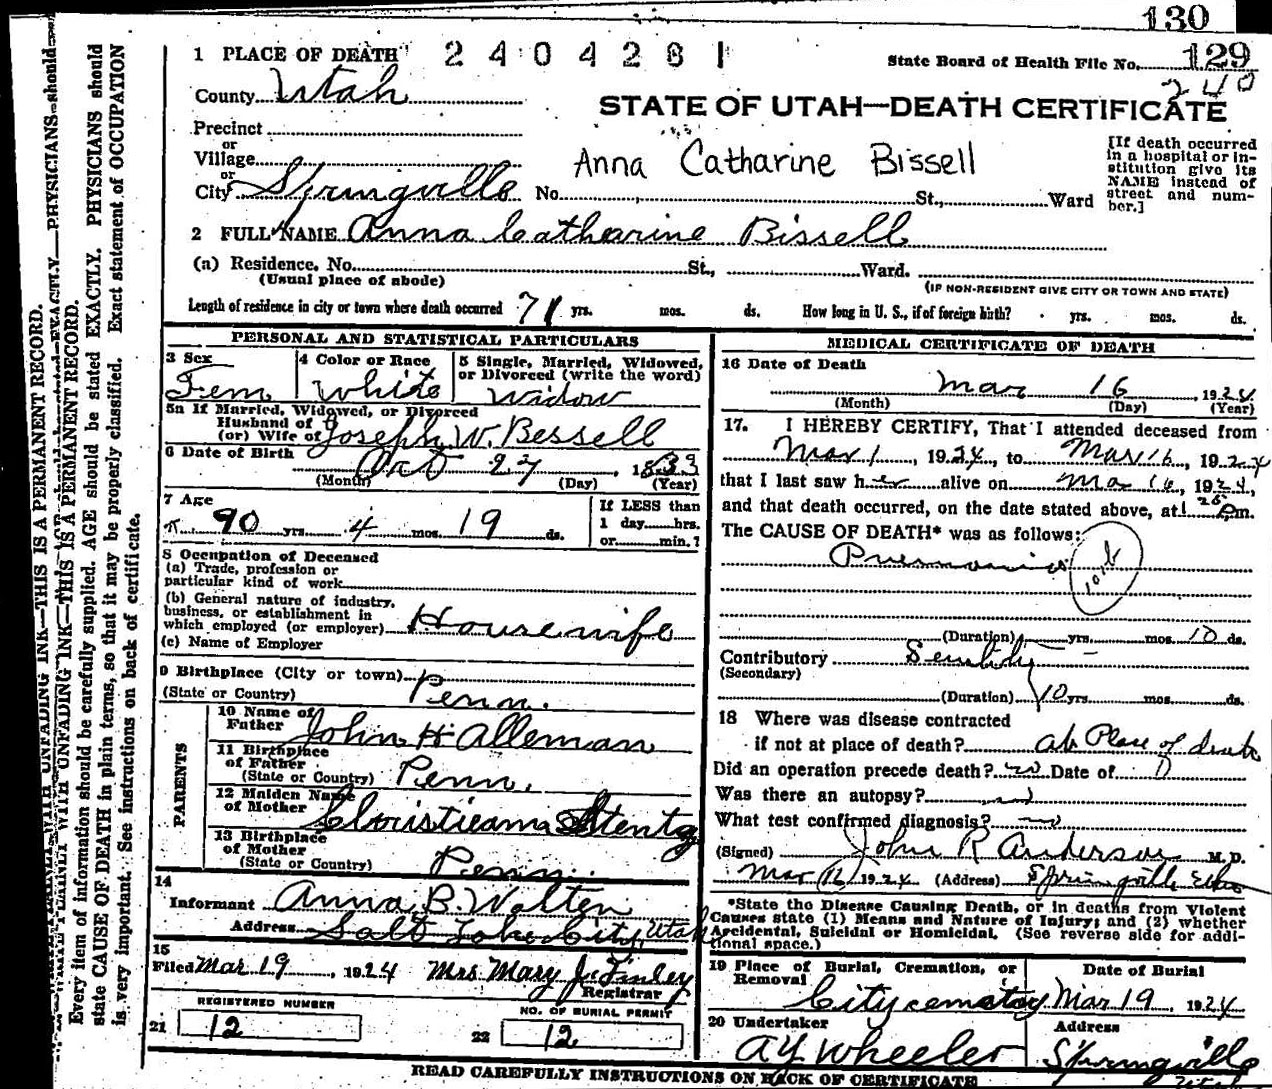 130
1 PLACE OF DEATH 2404281 State Board of Health File No. 129
240
County Utah
STATE OF UTAH—DEATH CERTIFICATE
Precinct
or
Village
Anna Catharine Bissell
[If death occurred in a hospital or institution give its NAME instead of street and number.]
or
City Springville No. St., Ward
2 FULL NAME Anna Catharine Bissell
(a) Residence. No. St., Ward.
(Usual place of abode) (IF NON-RESIDENT GIVE CITY OR TOWN AND STATE)
Length of residence in city or town where death occurred 71 yrs. mos. ds. How long in U. S., if of foreign birth? yrs. mos. ds.
PERSONAL AND STATISTICAL PARTICULARS
3 Sex 4 Color or Race 5 Single, Married, Widowed, or Divorced (write the word)
Fem White Widow
5a If Married, Widowed, or Divorced
Husband of
(or) Wife of Joseph W. Bessell
6 Date of Birth
Oct 27, 1833
(Month) (Day) (Year)
7 Age If LESS than
90 yrs. 4 mos. 19 ds. 1 day hrs.
or min.?
8 Occupation of Deceased
(a) Trade, profession or
particular kind of work
(b) General nature of industry,
business, or establishment in
which employed (or employer) Housewife
(c) Name of Employer
9 Birthplace (City or town)
(State or Country) Penn.
PARENTS
10 Name of
Father John H Alleman
11 Birthplace
of Father
(State or Country) Penn.
12 Maiden Name
of Mother Christieann Stentz
13 Birthplace
of Mother
(State or Country) Penn.
14
Informant Anna B. Walten
Address Salt Lake City, Utah
15
Filed Mar 19, 1924 Mrs. Mary J. Finley
Registrar
REGISTERED NUMBER NO. OF BURIAL PERMIT
21 12 22 12
MEDICAL CERTIFICATE OF DEATH
16 Date of Death
Mar 16 1924
(Month) (Day) (Year)
17. I HEREBY CERTIFY, That I attended deceased from
Mar 1, 1924, to Mar 16, 1924
that I last saw her alive on Mar 16, 1924,
and that death occurred, on the date stated above, at 1 25 Pm.
The CAUSE OF DEATH* was as follows:
Pneumonia
(Duration) yrs. mos. 10 ds.
Contributory Senility
(Secondary)
(Duration) 10 yrs. mos. ds.
18 Where was disease contracted
if not at place of death? at Place of death
Did an operation precede death? no Date of 0
Was there an autopsy? no
What test confirmed diagnosis? no
(Signed) John R Anderson M. D.
Mar 16 1924 (Address) Springville
*State the Disease Causing Death, or in deaths from Violent
Causes state (1) Means and Nature of Injury; and (2) whether
Accidental, Suicidal or Homicidal. (See reverse side for addi-
tional space.)
19 Place of Burial, Cremation, or Removal Date of Burial
City cemetery Mar 19 1924
20 Undertaker Address
A Y Wheeler Springville
Utah
READ CAREFULLY INSTRUCTIONS ON BACK OF CERTIFICATE
WITH UNFADING INK—THIS IS A PERMANENT RECORD.
Every item of information should be carefully supplied. AGE should be stated EXACTLY. PHYSICIANS should
state CAUSE OF DEATH in plain terms, so that it may be properly classified. Exact statement of OCCUPATION
is very important. See instructions on back of certificate.